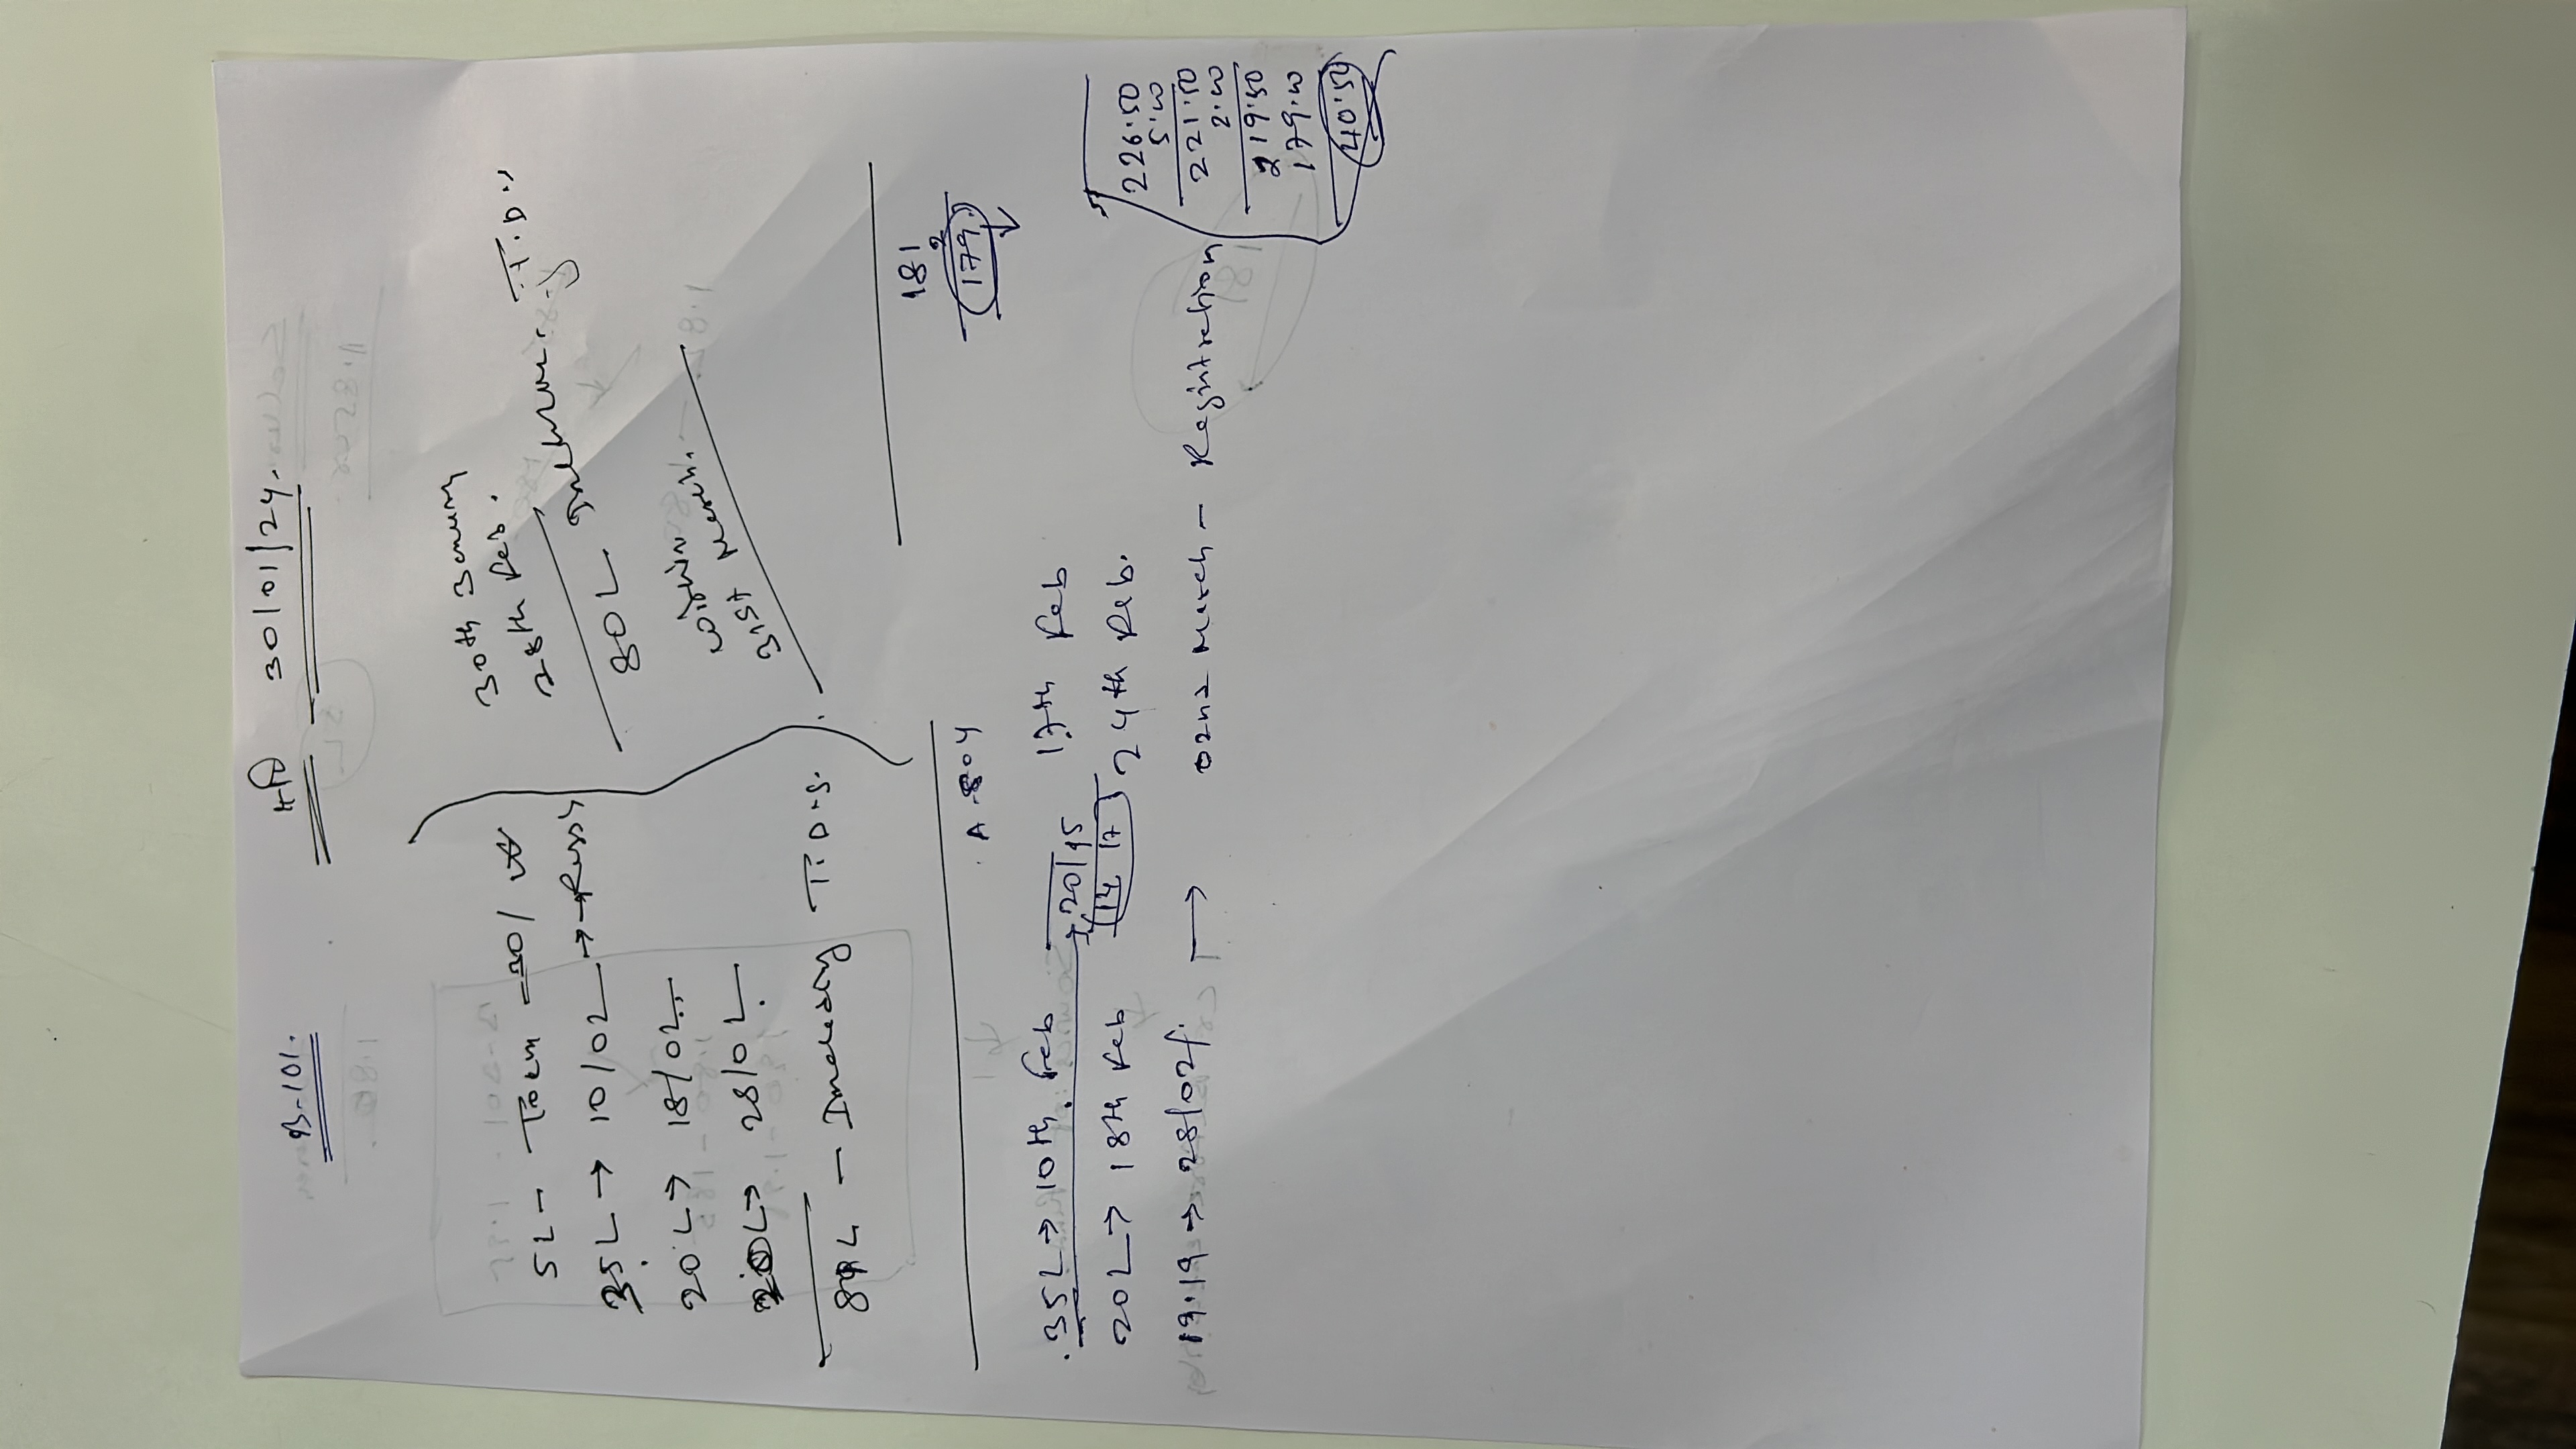 B-101. 30/01/24.
5L - Token - 30/
35L → 10/02 →
20L → 18/02
20L → 28/02
80L - Including T.D.S.
30th January
28th Feb.
80L T.D.S
within
31st March.
181
2
179
A-804
35L → 10th Feb 20/15 17th Feb
20L → 18th Feb 14 17 24th Feb.
19.19 → 28/02 → 02nd March - Registration
226.50
5.00
221.50
2.00
219.50
179.00
40.50